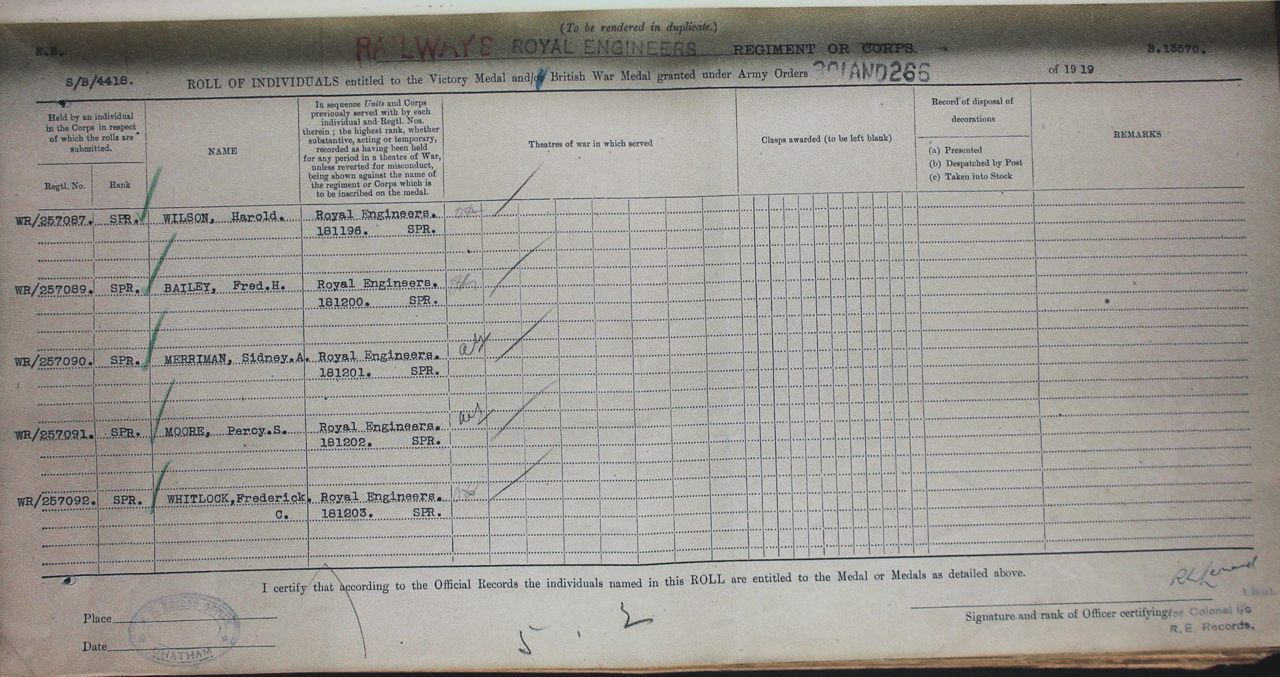 (To be rendered in duplicate.)
E.B. RAILWAYS ROYAL ENGINEERS REGIMENT OR CORPS. B.15570.
S/B/4418. ROLL OF INDIVIDUALS entitled to the Victory Medal and/or British War Medal granted under Army Orders 301AND266 of 1919
Held by an individual
in the Corps in respect
of which the rolls are
submitted.
Regtl. No.
Rank
NAME
In sequence Units and Corps
previously served with by each
individual and Regtl. Nos.
therein; the highest rank, whether
substantive, acting or temporary,
recorded as having been held
for any period in a theatre of War,
unless reverted for misconduct,
being shown against the name of
the regiment or Corps which is
to be inscribed on the medal.
Theatres of war in which served
Clasps awarded (to be left blank)
Record of disposal of
decorations
(a) Presented
(b) Despatched by Post
(c) Taken into Stock
REMARKS
WR/257087. SPR. WILSON, Harold. Royal Engineers.
181196. SPR.
WR/257089. SPR. BAILEY, Fred.H. Royal Engineers.
181200. SPR.
WR/257090. SPR. MERRIMAN, Sidney.A. Royal Engineers.
181201. SPR.
WR/257091. SPR. MOORE, Percy.S. Royal Engineers.
181202. SPR.
WR/257092. SPR. WHITLOCK,Frederick. Royal Engineers.
C. 181203. SPR.
I certify that according to the Official Records the individuals named in this ROLL are entitled to the Medal or Medals as detailed above.
Place
Date
CHATHAM
5 . 2
Signature and rank of Officer certifying for Colonel i/c
R.E. Records.